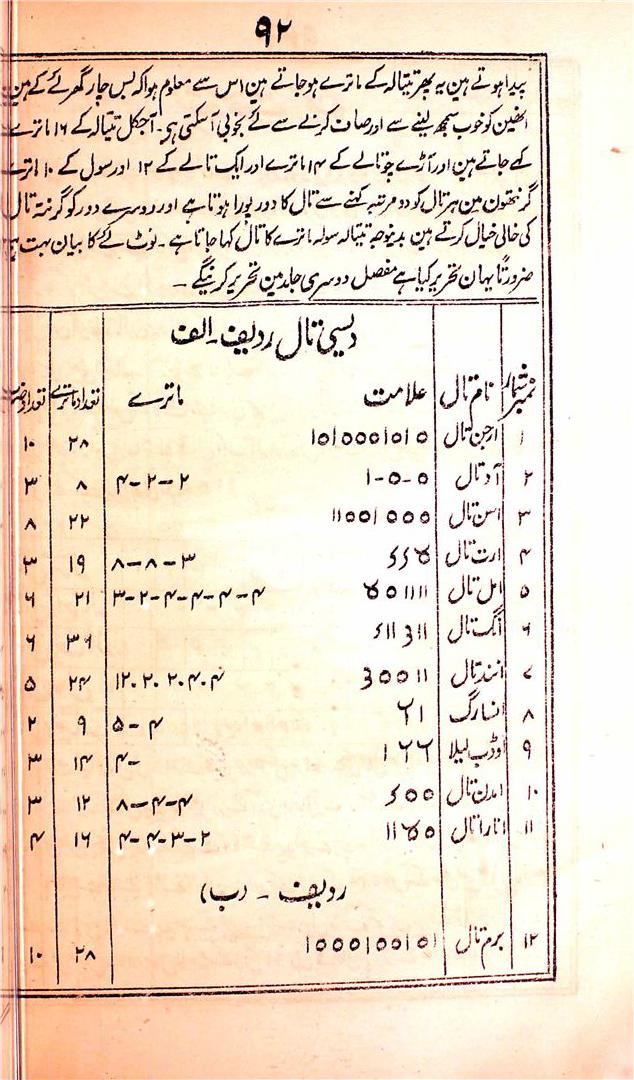 ۹۲
پیدا ہوتے ہین یہ پھر تیتالہ کے ماترے ہو جاتے ہین اس سے معلوم ہوا کہ بس چار گھرنے کے ہین
انھین کو خوب سمجھ لینے سے اور صاف کرنے سے لَے بخوبی آسکتی ہی۔ آجکل تیتالہ کے ۱۶ ماترے
کہے جاتے ہین اور آڑے چوتالے کے ۱۴ ماترے اور ایک تالے کے ۱۲ اور سول کے ۱۰ ماترے
گرنتھون مین ہر تال کو دو مرتبہ کہنے سے تال کا دور پورا ہوتا ہے اور دوسرے دور کو گرنتہ تال
کی خالی خیال کرتے ہین بدینوجہ تیتالہ سولہ ماترے کا تال کہا جاتا ہے۔ نوٹ لَے کا بیان بہت ہے
ضرورتاً یہان تحریر کیا ہے مفصل دوسری جلد مین تحریر کرینگے۔
دیسی تال ردیف۔ الف
نمبر شمار نام تال علامت ماترے تعداد ماترے تعداد ضرب
۱ ارجن تال ۱۵۱۵۵۵۱۵۱۵ ۲۸ ۱۰
۲ آد تال ۱-۵-۵ ۴-۲-۲ ۸ ۳
۳ اسن تال ۱۱۵۵۱۵۵۵ ۲۲ ۸
۴ ارت تال ۸-۸-۳ ۱۹ ۳
۵ امل تال ۳-۲-۴-۴-۴-۴ ۲۱ ۶
۶ انگ تال ۳۶ ۶
۷ انند تال ۱۲.۲.۲.۴.۴ ۲۴ ۵
۸ انسارگ ۵-۴ ۹ ۲
۹ اوڈب لیلا ۴- ۱۴ ۳
۱۰ امدن تال ۸-۴-۴ ۱۲ ۳
۱۱ انارا تال ۴-۴-۳-۲ ۱۶ ۴
ردیف - (ب)
۱۲ برم تال ۱۵۵۵۱۵۵۱۵۱ ۲۸ ۱۰